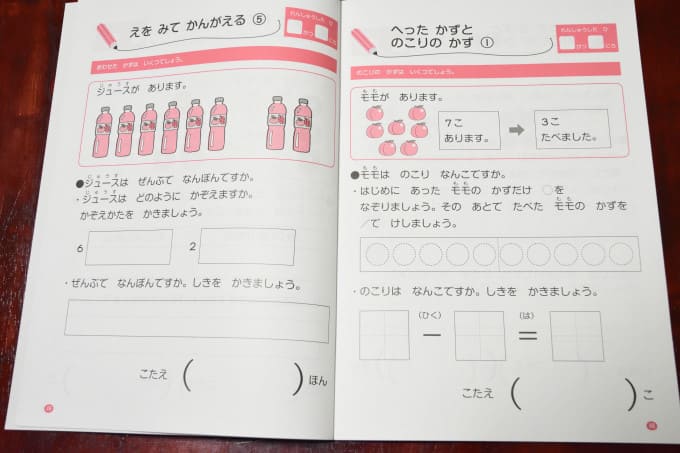 えを みて かんがえる ⑤
れんしゅうした ひ
がつ にち
あわせた かずは いくつでしょう。
ジュースが あります。
じゅうす
●ジュースは ぜんぶで なんぼんですか。
じゅうす
・ジュースは どのように かぞえますか。
じゅうす
かぞえかたを かきましょう。
6 2
・ぜんぶで なんぼんですか。しきを かきましょう。
こたえ ( ) ほん
へった かずと
のこりの かず ①
れんしゅうした ひ
がつ にち
のこりの かずは いくつでしょう。
もも
モモが あります。
7こ
あります。
➡
3こ
たべました。
もも
●モモは のこり なんこですか。
もも
・はじめに あった モモの かずだけ ○を
もも
なぞりましょう。その あとで たべた モモの かずを
／で けしましょう。
・のこりは なんこですか。しきを かきましょう。
(ひく) (は)
－ ＝
こたえ ( ) こ